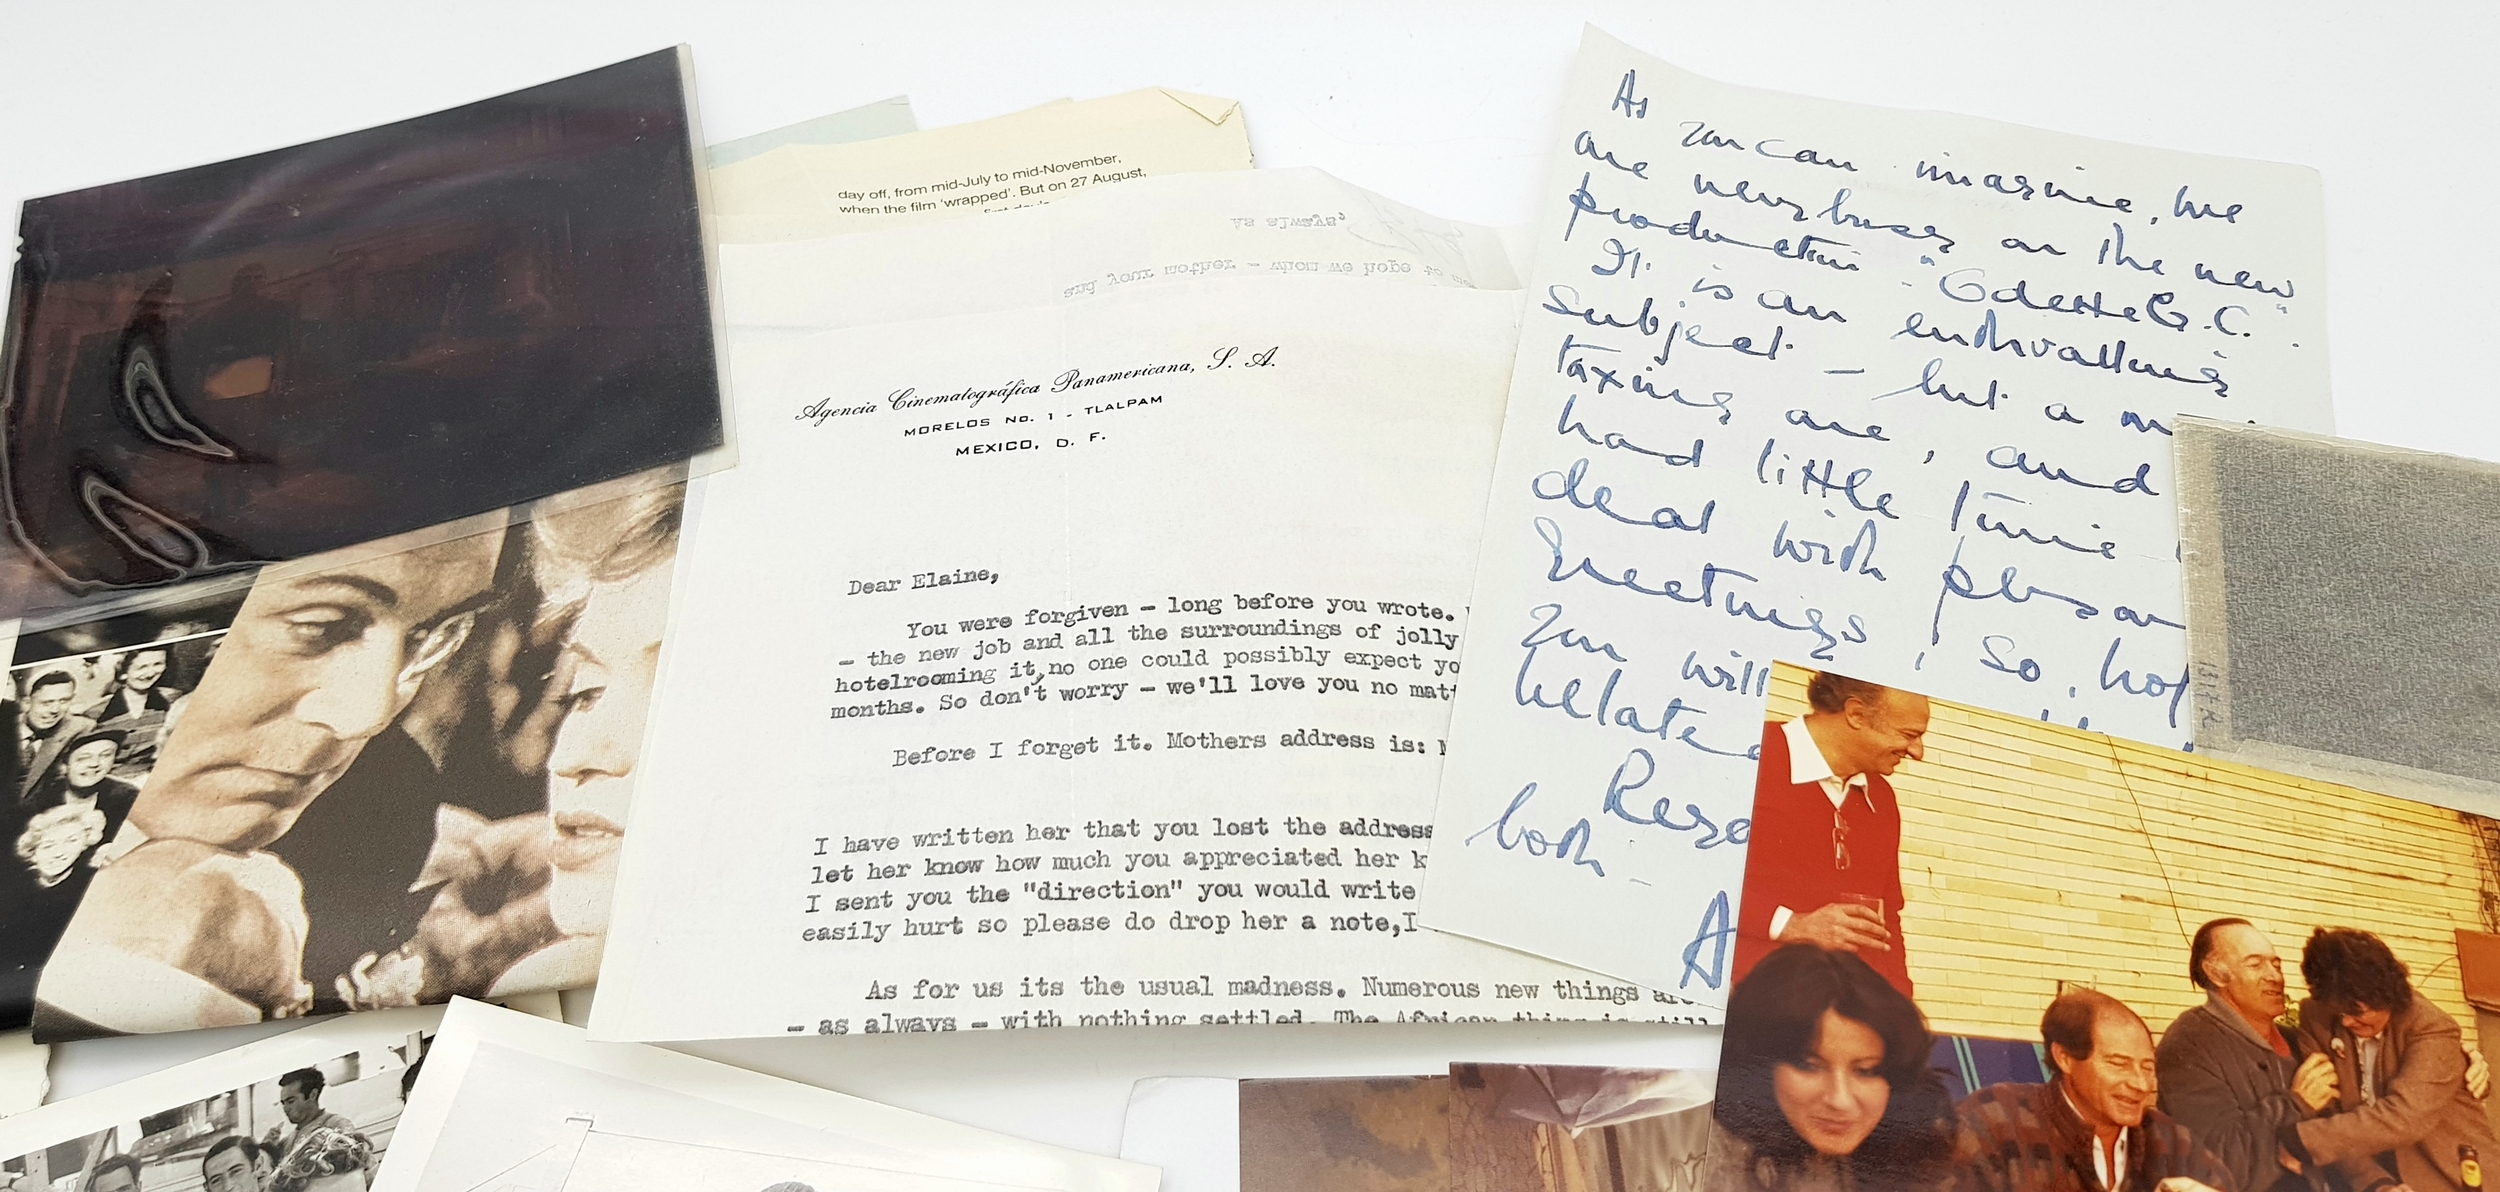 day off, from mid-July to mid-November,
when the film 'wrapped'. But on 27 August,
As always,
and your mother - whom we hope to
Agencia Cinematográfica Panamericana, S. A.
MORELOS No. 1 - TLALPAM
MEXICO, D. F.
Dear Elaine,
You were forgiven - long before you wrote.
- the new job and all the surroundings of jolly
hotelrooming it, no one could possibly expect yo
months. So don't worry - we'll love you no mat
Before I forget it. Mothers address is:
I have written her that you lost the address
let her know how much you appreciated her k
I sent you the "direction" you would write
easily hurt so please do drop her a note, I
As for us its the usual madness. Numerous new things are
- as always - with nothing settled. The African thing is still
As
you can imagine, we
are very busy on the new
production "Odette G.C."
It is an enthralling
subject - but a
taxing one, and
had little time
deal with person
Greetings, so, hop
you will
belated
Rega
both -
A